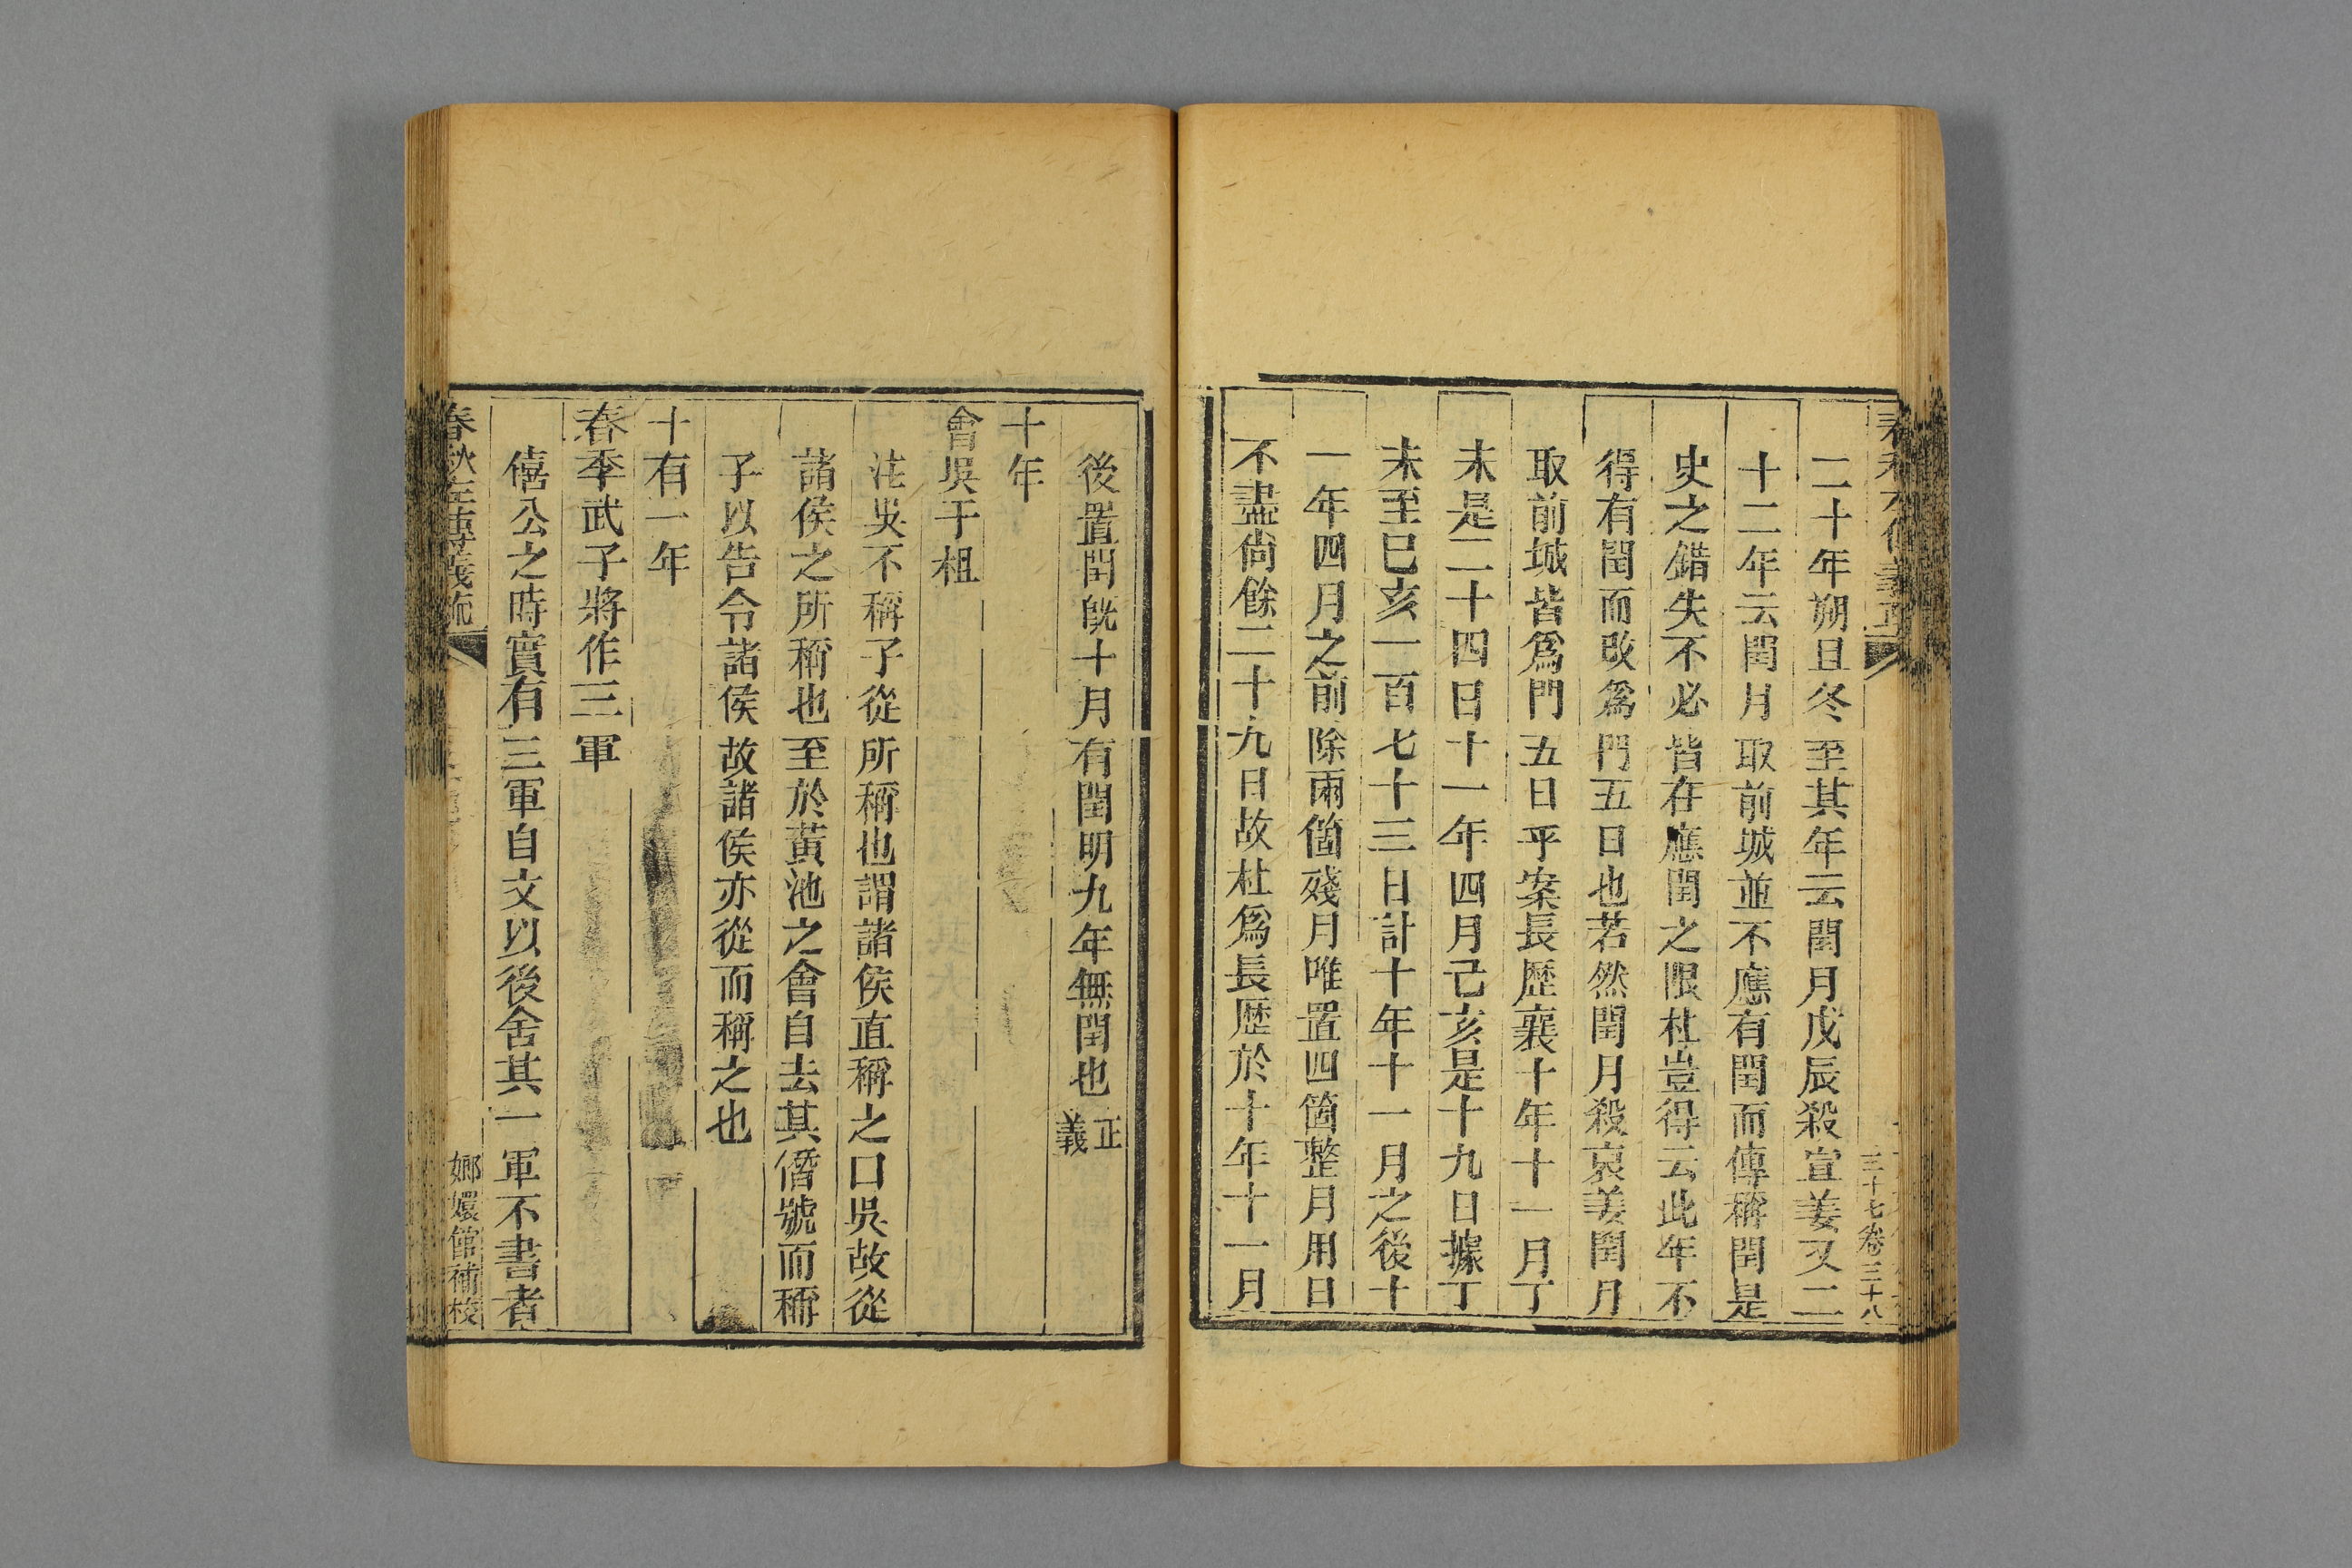 二十年朔旦冬至其年云閏月戊辰殺宣姜又二
十二年云閏月取前城並不應有閏而傳稱閏是
史之錯失不必皆在應閏之限杜豈得云此年不
得有閏而改爲門五日也若然閏月殺哀姜閏月
取前城皆爲門五日乎案長歷襄十年十一月丁
未是二十四日十一年四月己亥是十九日據丁
未至已亥一百七十三日計十年十一月之後十
一年四月之前除兩箇殘月唯置四箇整月用日
不盡尚餘二十九日故杜爲長歷於十年十一月
後置閏旣十月有閏明九年無閏也正義
十年
會吳于柤
注吳不稱子從所稱也謂諸侯直稱之口吳故從
諸侯之所稱也至於黃池之會自去其僭號而稱
子以告令諸侯故諸侯亦從而稱之也
十有一年
春季武子將作三軍
僖公之時實有三軍自文以後舍其一軍不書者
春秋左傳義疏
嫏嬛館補校